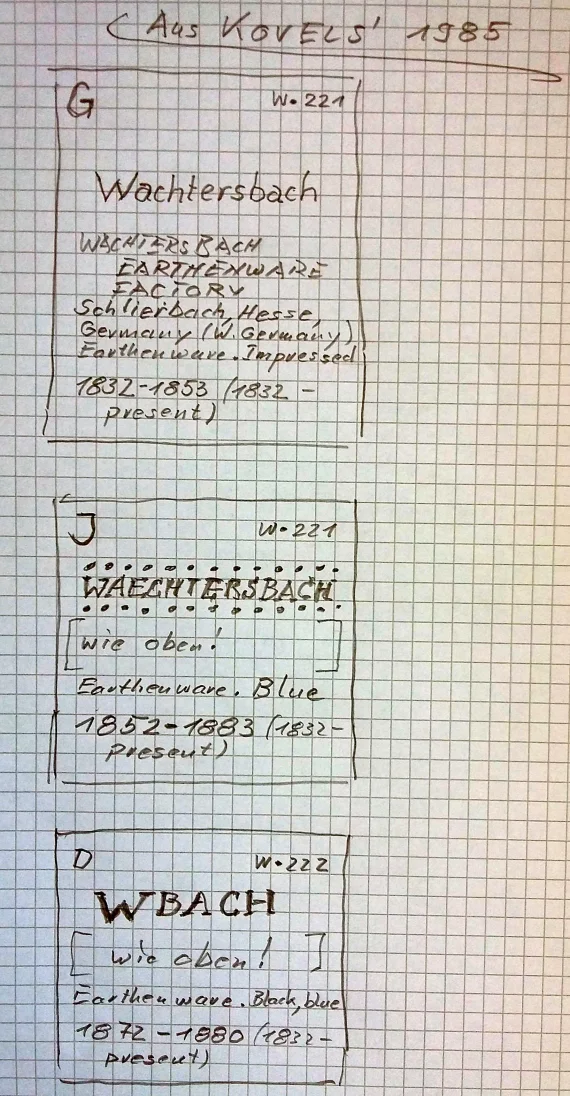 (Aus KOVELS' 1985
G W•221
Wachtersbach
WACHTERSBACH
EARTHENWARE
FACTORY
Schlierbach, Hesse,
Germany (W. Germany)
Earthenware. Impressed
1832-1853 (1832 -
present)
J W•221
WAECHTERSBACH
[wie oben!]
Earthenware. Blue
1852-1883 (1832-
present)
D W•222
WBACH
[wie oben!]
Earthenware. Black, blue
1872-1880 (1832-
present)